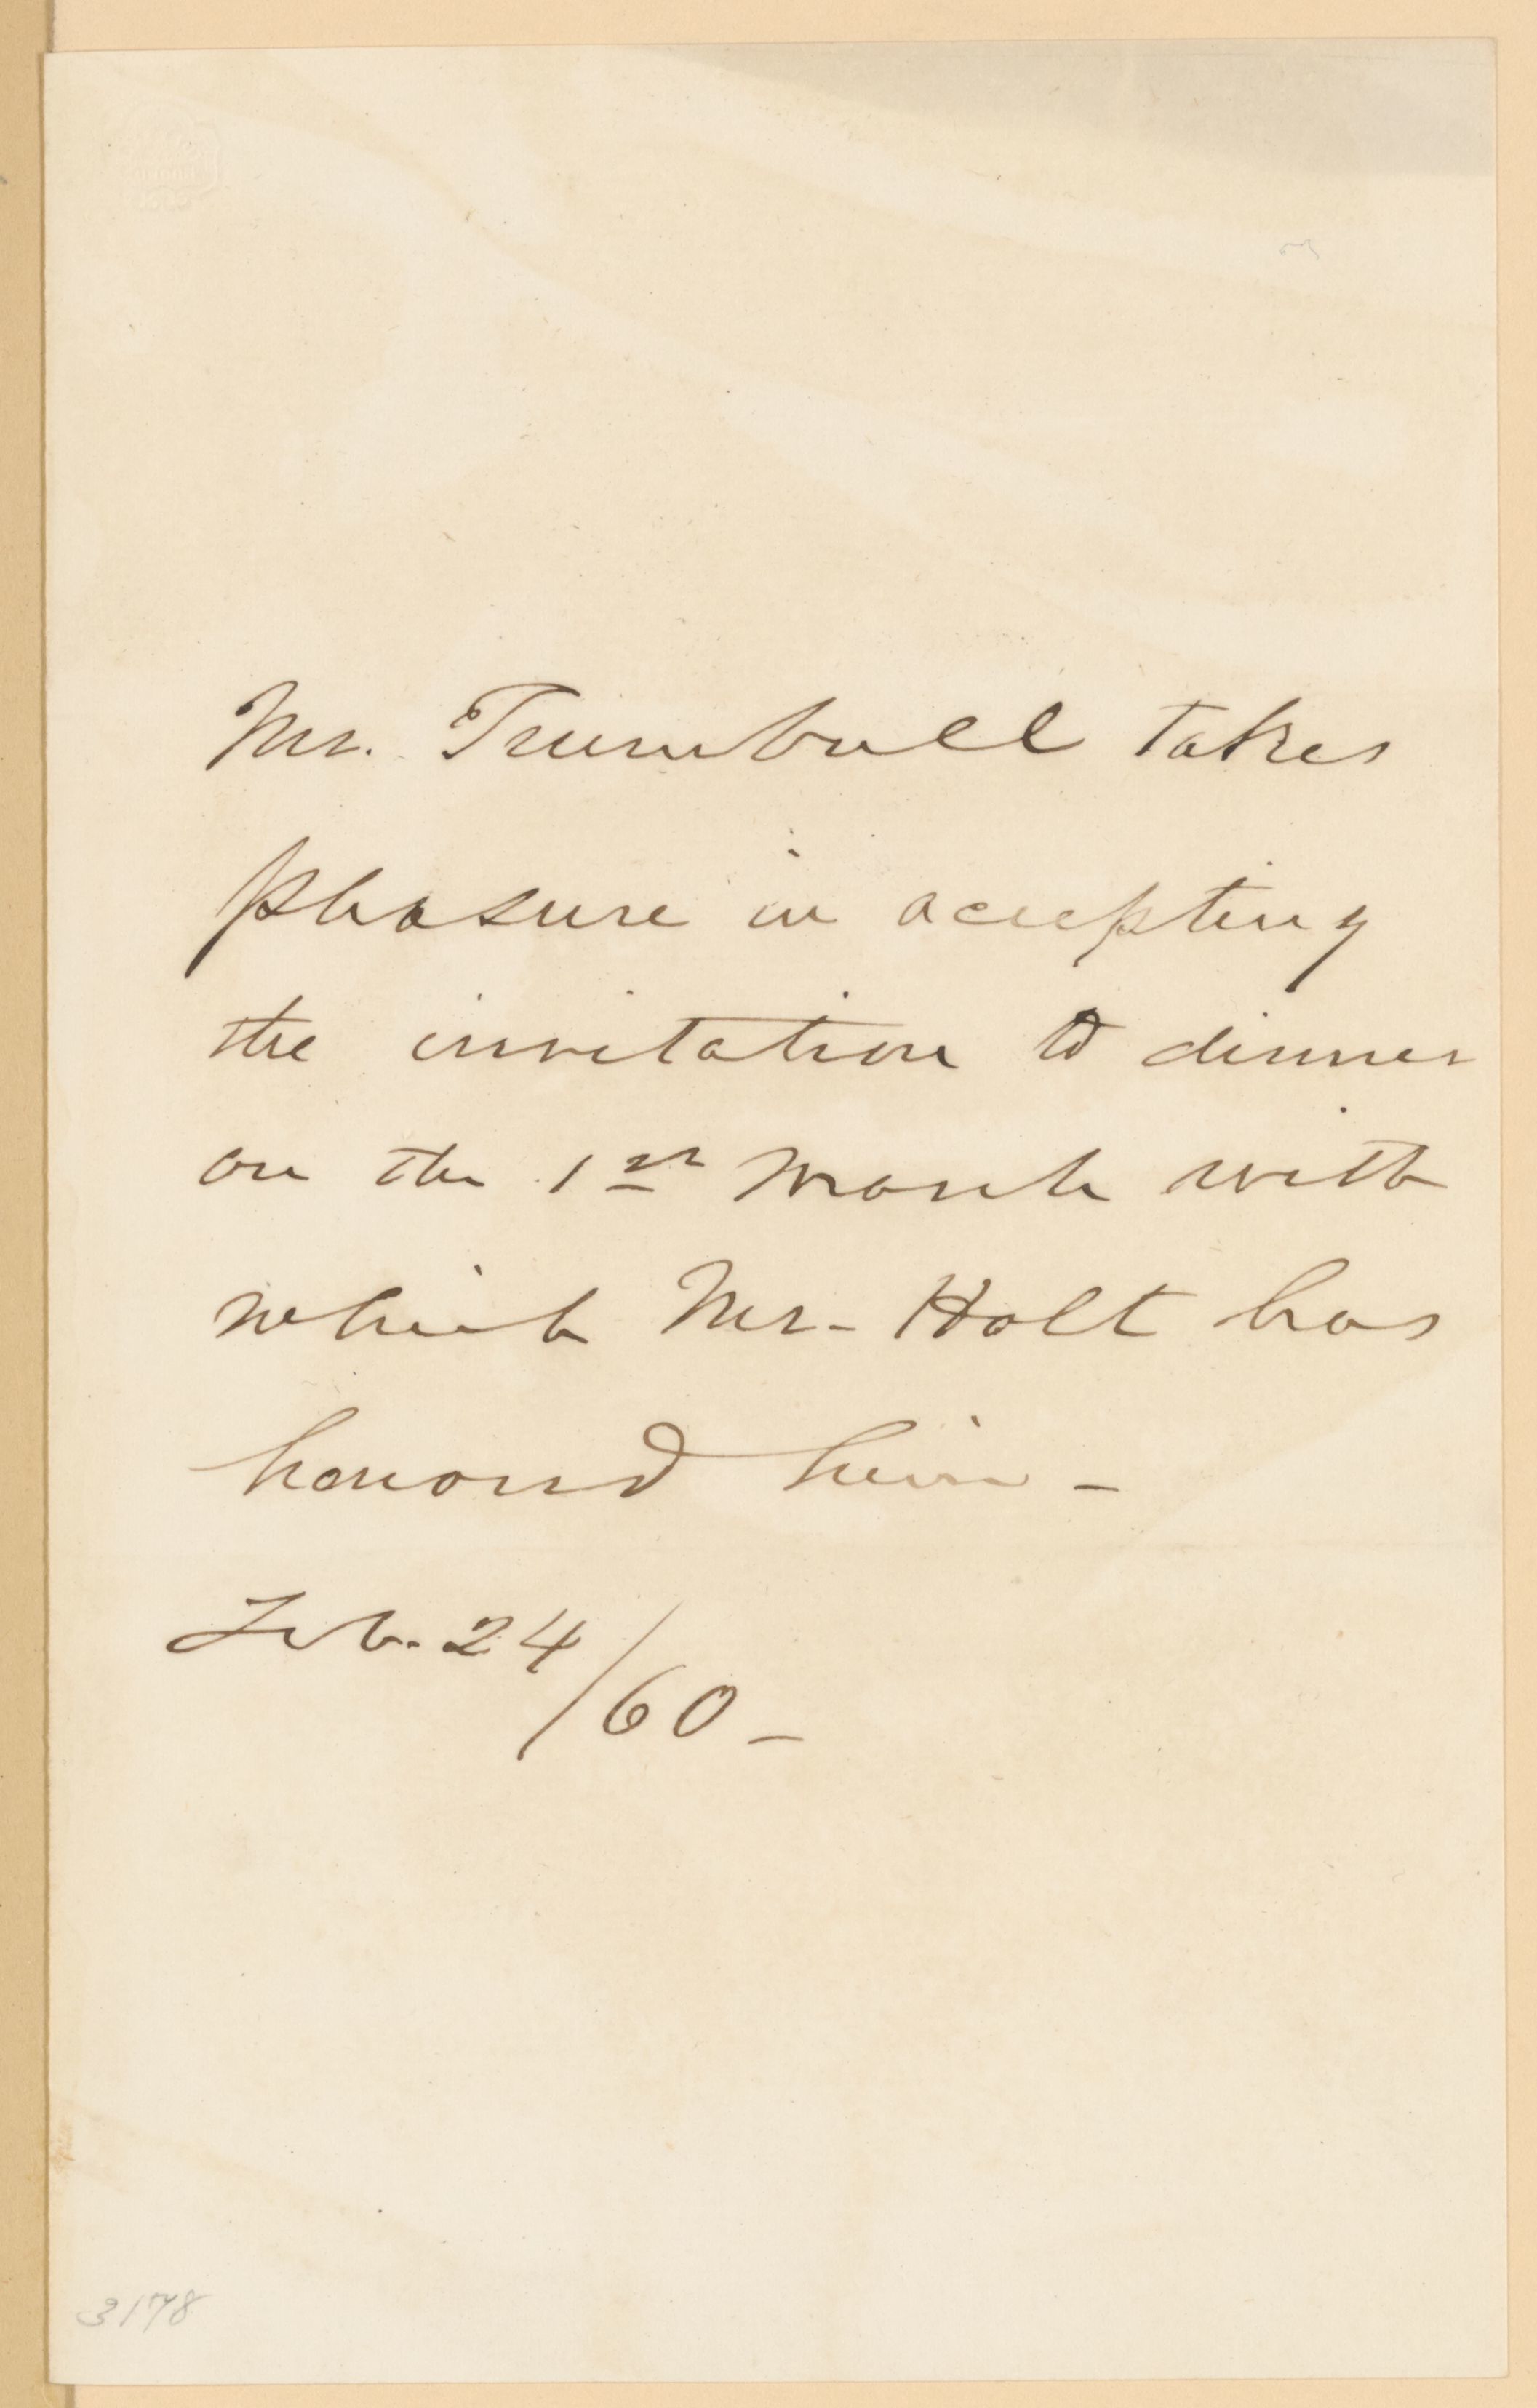 Mr. Trumbull takes
pleasure in accepting
the invitation to dinner
on the 1st March with
which Mr- Holt has
honored him -
Feb. 24/60 -
3178